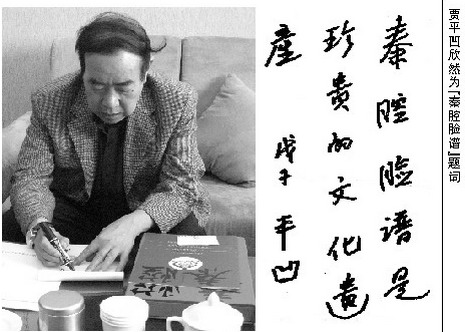 贾平凹欣然为「秦腔脸谱」题词
秦腔脸谱是
珍贵的文化遗
産 戊子 平凹